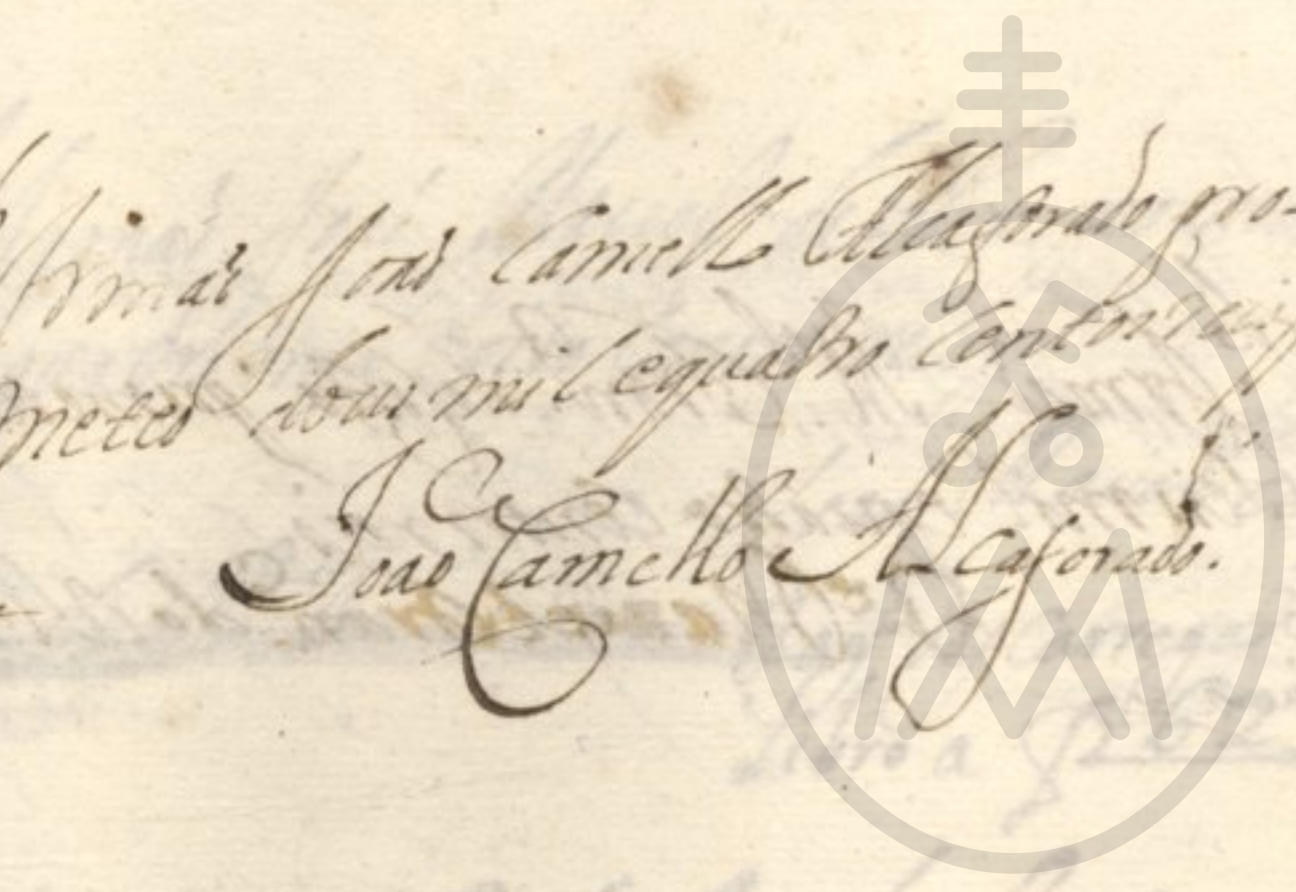 Irmaõ Joaõ Camello Alcaforado pro-
meteo dous mil e quatro centos reis
Joaõ Camello Alcaforado.